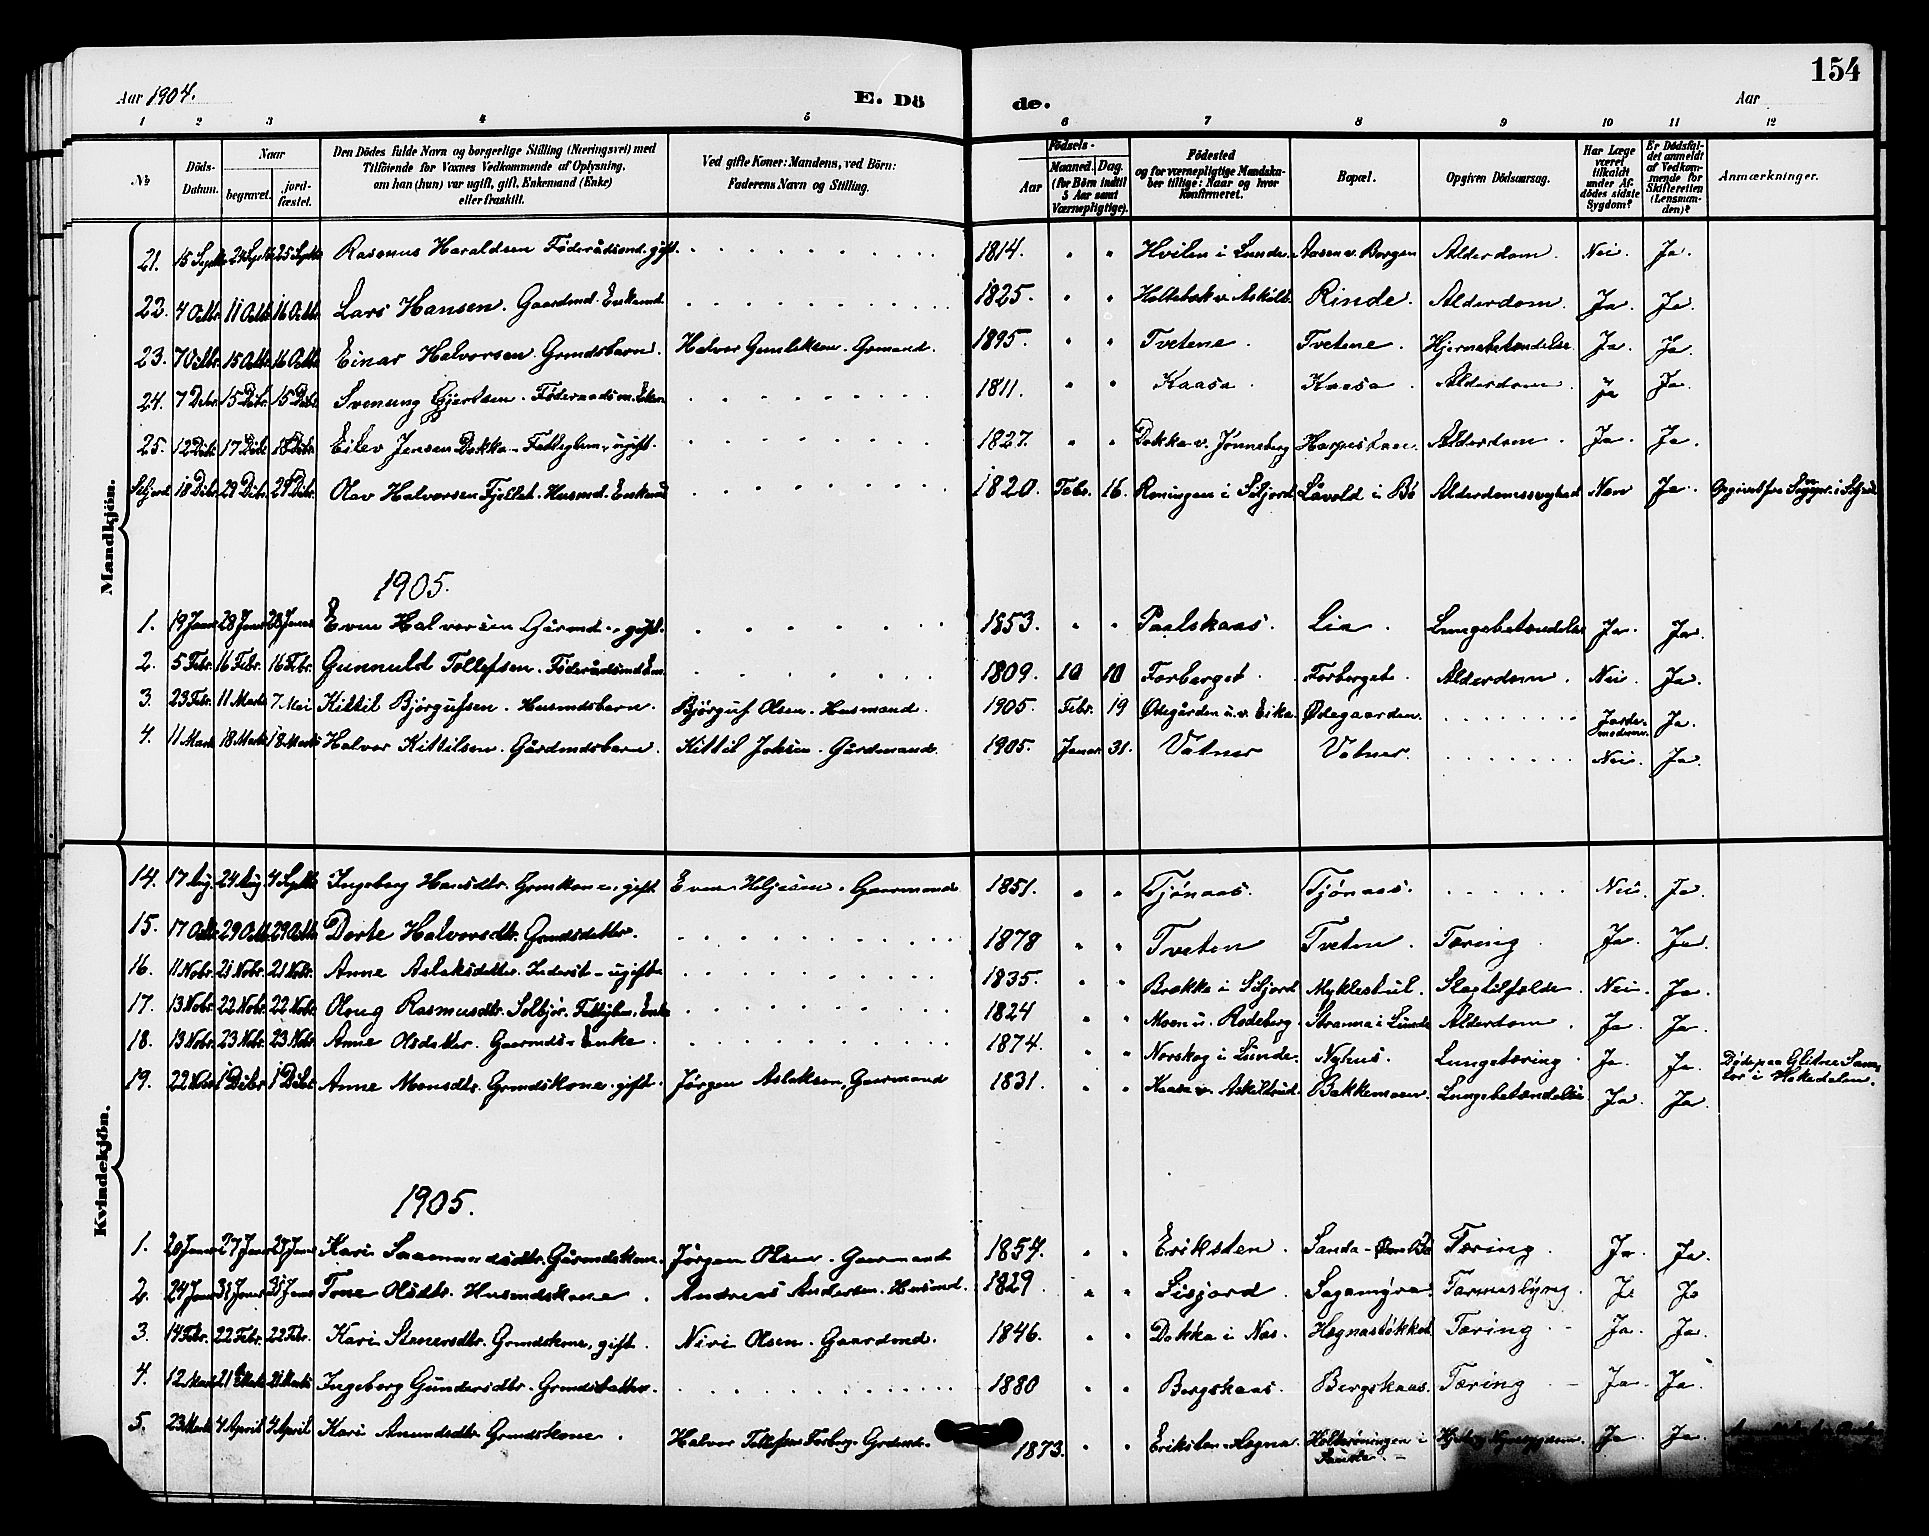 Aar 1904. E. Dö de. Aar 154
1 2 3 4 5 6 7 8 9 10 11 12
№ Döds-Datum. Naar begravet. jord-fæstet. Den Dödes fulde Navn og borgerlige Stilling (Næringsvei) med Tilföiende for Voxnes Vedkommende af Oplysning, om han (hun) var ugift, gift, Enkemand (Enke) eller fraskilt. Ved gifte Koner: Mandens, ved Börn: Faderens Navn og Stilling. Födsels- Aar Maaned. Dag. (for Börn indtil 5 Aar samt Værnepligtige). Födested og for værnepligtige Mandskaber tillige: Naar og hvor Konfirmeret. Bopæl. Opgiven Dödsaarsag. Har Læge været tilkaldt under Afdödes sidste Sygdom? Er Dödsfaldet anmeldt af Vedkommende for Skifteretten (Lensmanden)? Anmærkninger.
Mandkjön.
21. 15 Septbr. 24 Septbr 25 Septbr Rasmus Haraldsen Føderådsmd. gift. 1814. " " Hvilen i Lunde. Aasen v. Borgen Alderdom. Nei. Ja.
22. 4 Octbr. 11 Octbr 16 Octbr. Lars Hansen. Gaardmd. Enkemd. 1825. " " Holtebæk v. Askild. Rinde. Alderdom. Ja. Ja.
23. 7 Octbr. 15 Octbr. 16 Octbr. Einar Halvorsen. Grmdsbarn. Halvor Gunleiksen. Grmand. 1895. " " Tvetene. Tvetene. Hjernebetændelse Ja. Ja.
24. 7 Debr. 15 Debr. 15 Debr. Svenung Gjertsen. Føderaadsm. Enkem. 1811. " " Kaasa. Kaasa. Alderdom. Ja Ja.
25. 12 Debr. 17 Debr. 18 Debr. Eilev Jensen Dokka - Fattiglem, ugift. 1827. " " Dokka v. Jønneberg Alderdom. Ja. Ja.
Siljord 18 Debr. 29 Debr. 29 Debr. Olav Halvorsen Fjellet. Husmd. Enkemd 1820. Febr. 16. Roningen i Siljord Låvold i Bø Alderdomssvaghed Nei Ja. Opgivet fra Sognepr. i Siljord
1905.
1. 19 Janr 28 Janr 28 Janr Even Halvorsen Gårmd. gift. 1853. " " Paalskaas. Lia. Lungebetændelse Ja. Ja.
2. 5 Febr. 16 Febr. 16 Febr. Gunnuld Tollefsen. Føderådsmd Em. 1809. 10 10 Forberget. Forberget. Alderdom. Nei. Ja.
3. 23 Febr. 11 Marts 7 Mai Kittil Bjørgufsen. Husmdsbarn. Bjørguf Olsen. Husmand. 1905. Febr. 19 Ødegården u. v. Eika. Ødegaarden. Jordemoderen. Ja.
4. 11 Marts 18 Marts 18 Marts Halvor Kittilsen. Gårdmdsbarn. Kittil Johsen. Gårdmand. 1905. Januar 31. Vatnar Vatnar. Nei. Ja.
Kvindekjön.
14. 17 Aug. 24 Aug. 4 Septbr Ingeborg Hansdtr. Grmkone, gift Even Gaarmand. 1851. " " Tjønaas. Tjønaas. Nei Ja.
15. 17 Octbr. 29 Octbr. 29 Octbr. Dorte Halvorsdtr. Grmdsdatter. 1878 " " Tveten Tveten. Tæring. Ja. Ja.
16. 11 Nobr. 21 Nobr. 21 Nobr. Anne Aslaksdatter. Inderst - ugift. 1835. " " Brække i Siljord Myklestul. Slagtilfælde. Nei. Ja.
17. 13 Nobr. 22 Nobr. 22 Nobr. Olaug Rasmusdtr. Solbjør. Fattiglem. Enke 1824 " " Moen u. Rodeberg. Stranna i Lunde Alderdom. Ja. Ja.
18. 13 Nobr. 23 Nobr. 23 Nobr. Anne Olsdatter. Gaarmds - Enke. 1874. " " Norskog i Lunde. Nyhus. Lungetæring. Ja. Ja. Døde paa Glitne Sanator i Hakadalen.
19. 22 Nobr 1 Debr 1 Debr Anne Monsdtr. Grmdskone. gift. Jørgen Aslaksen. Gaarmand 1831. " " Kaasa v. Askildrud. Bakkemoen. Lungebetændelse Ja. Ja
1905.
1. 20 Janr 27 Janr 27 Janr Kari Saamundsdtr. Gårmdskone. Jørgen Olsen. Gaarmand 1854. " " Eriksten. Sanda - Øvre Bø Tæring. Ja. Ja.
2. 24 Janr 31 Janr 31 Janr Tone Olsdtr. Husmdskone. Andreas Andersen. Husmd. 1829 " " Sisjord. Sagamyra. Tarmeslyng. Ja Ja
3. 14 Febr. 22 Febr. 22 Febr. Kari Stenersdtr. Grmdskone, gift. Niri Olsen. Gaardmd. 1846. " " Dokka i Nes. Hægnastøkket. Tæring. Ja. Ja.
4. 12 Marts 21 Marts 21 Marts Ingeborg Gundersdtr. Grmdsdatter. 1880 " " Bergskaas. Bergskaas. Tæring Ja. Ja
5. 23 Marts 4 April 4 April Kari Amundsdtr. Grmdskone. Halvor Tollefsen Forberg. Grdmd. 1873. " " Eriksten - Hegna. i Saude. Ja Ja.